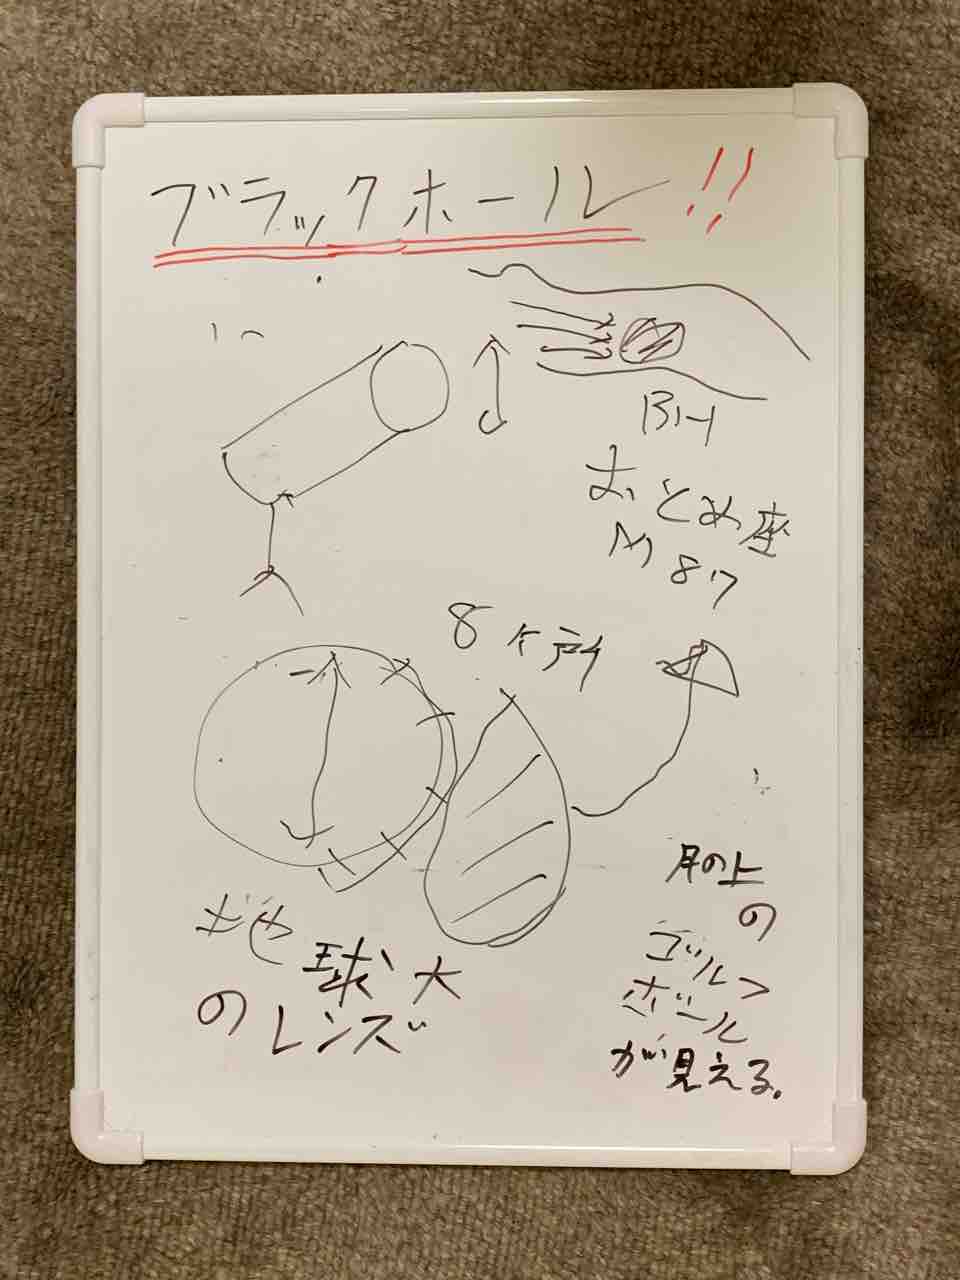 ブラックホール!!
BH
おとめ座
M87
8ケ所
地球大
のレンズ
月の上
の
ゴルフ
ボール
が見える.